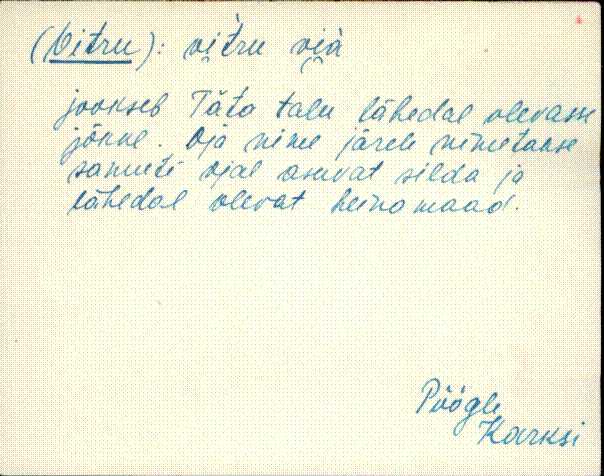 (Vitru): vi̮tru vi̮i̮à
jookseb Täto talu lähedal olevasse
jõkke. Oja nime järele nimetatakse
samuti ojal asuvat silda ja
lähedal olevat heinamaad.
Pöögle
Karksi